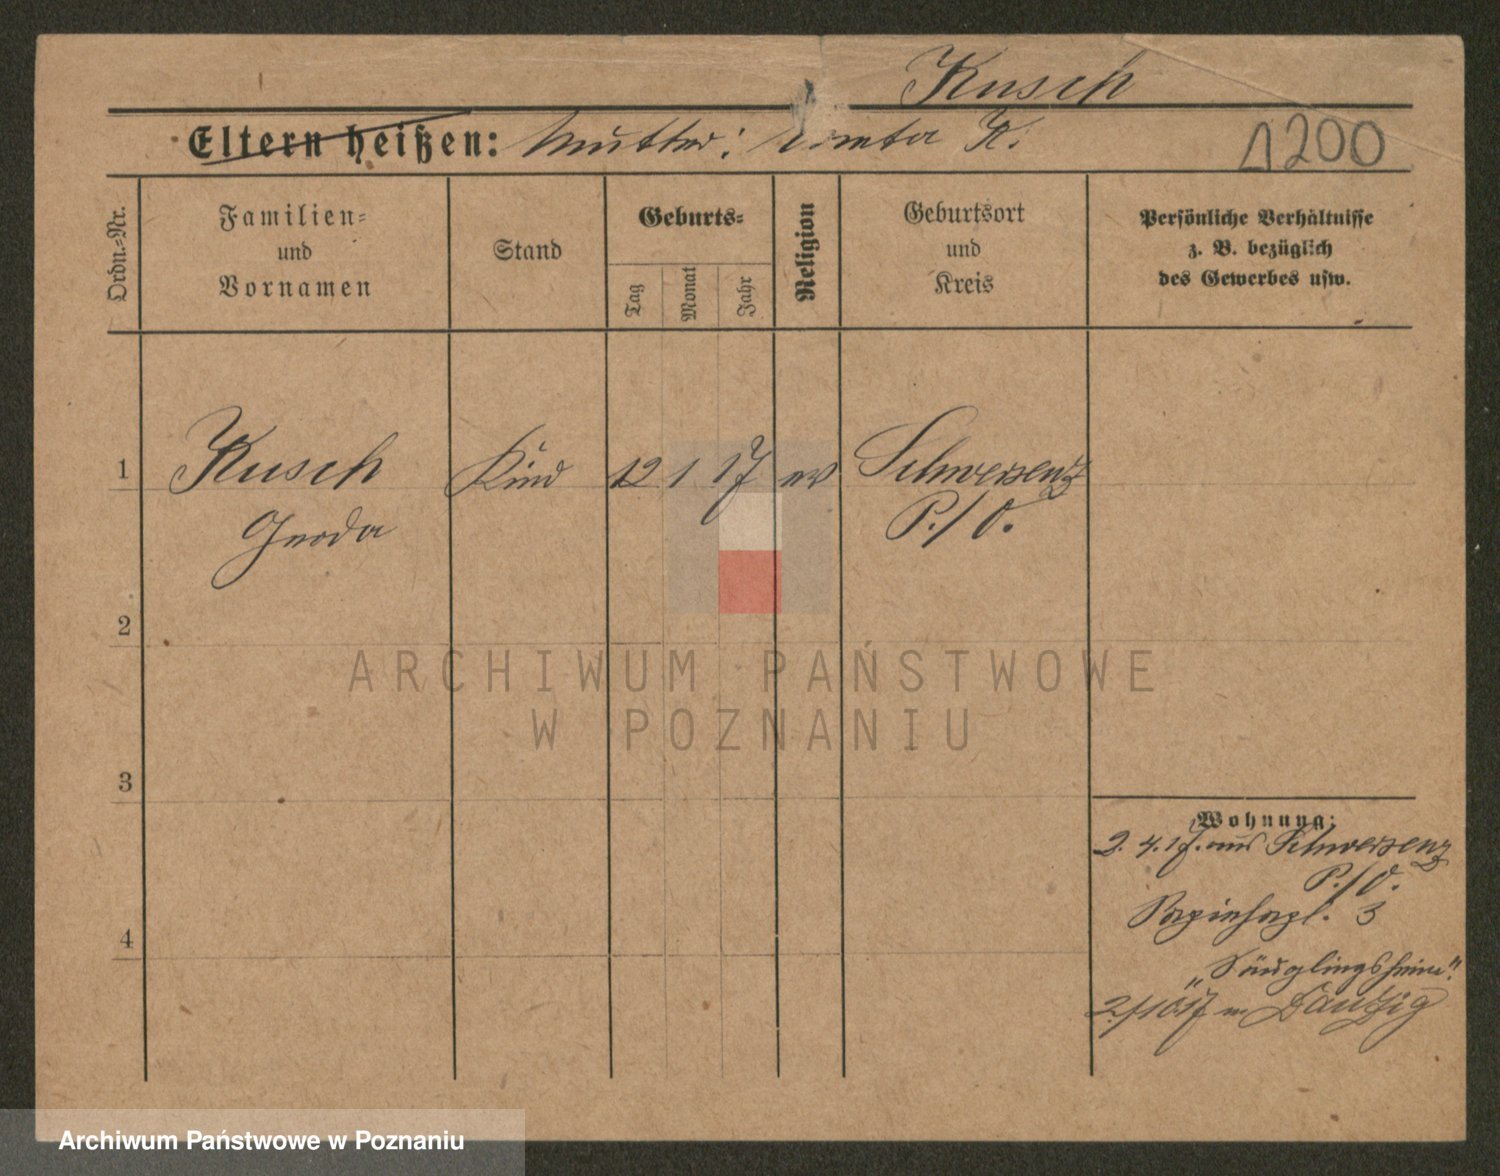 Kusch
Eltern heißen: Mutter: K.
1200
Ordn.=Nr.
Familien=
und
Vornamen
Stand
Geburts=
Tag
Monat
Jahr
Religion
Geburtsort
und
Kreis
Persönliche Verhältnisse
z. B. bezüglich
des Gewerbes usw.
1 Kusch Kind 12 1 17 ev Schwersenz
Gerda P./O.
2
3
4
Wohnung:
2. 4. 17. aus Schwersenz
P./O.
3
„Säuglingsheim“.
2/10 17 n. Danzig
ARCHIWUM PAŃSTWOWE
W POZNANIU
Archiwum Państwowe w Poznaniu